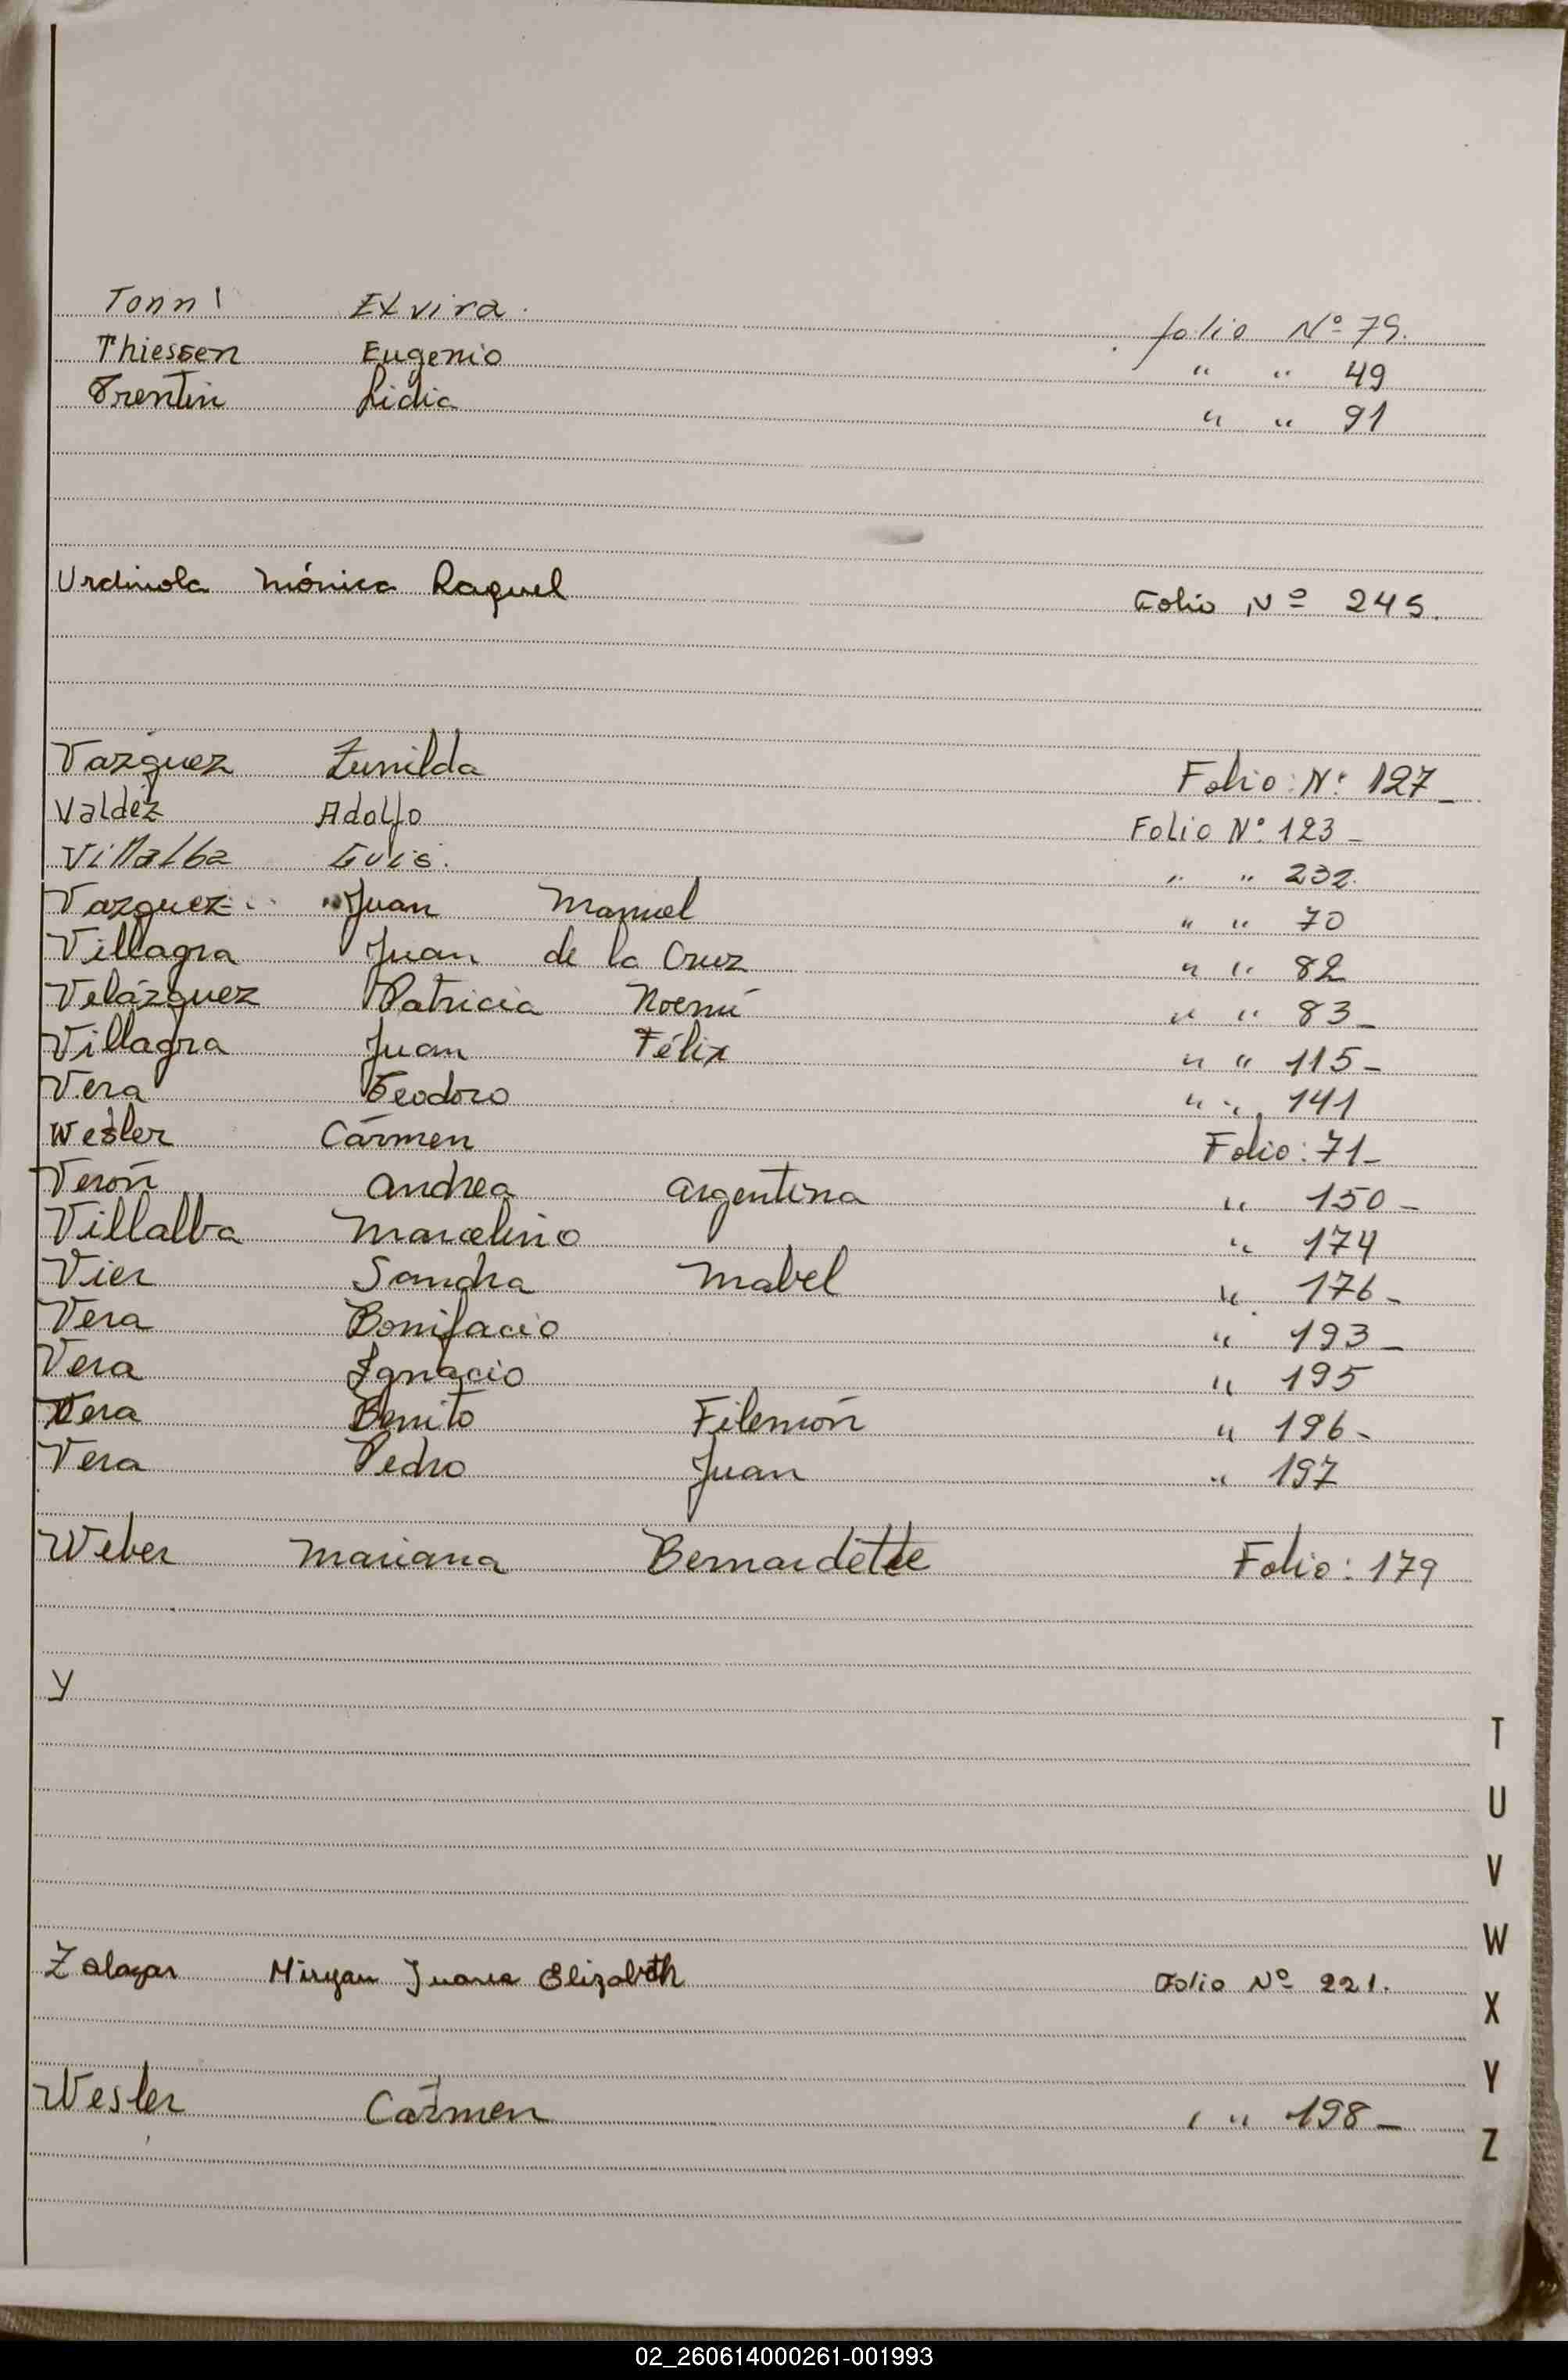 Tonn' Elvira. folio Nº 79.
Thiessen Eugenio " " 49
Trentin Lidia " " 91
Urdinola Mónica Raquel Folio Nº 245.
Vazquez Zunilda Folio: Nº 127_
Valdéz Adolfo Folio Nº 123-
Villalba Luis. " " 232.
Vazquez Juan Manuel " " 70
Villagra Juan de la Cruz " " 82
Velázquez Patricia Noemí " " 83_
Villagra Juan Félix " " 115-
Vera Teodoro " " 141
Wesler Carmen Folio: 71-
Verón Andrea Argentina " 150-
Villalba Marcelino " 174
Vier Sandra Mabel " 176-
Vera Bonifacio " 193_
Vera Ignacio " 195
Vera Benito Filemón " 196-
Vera Pedro Juan " 197
Weber Mariana Bernardette Folio: 179
Y
T
U
V
W
Zalazar Miryan Juana Elizabeth Folio Nº 221.
X
Y
Wesler Carmen " " 198_
Z
02_260614000261-001993